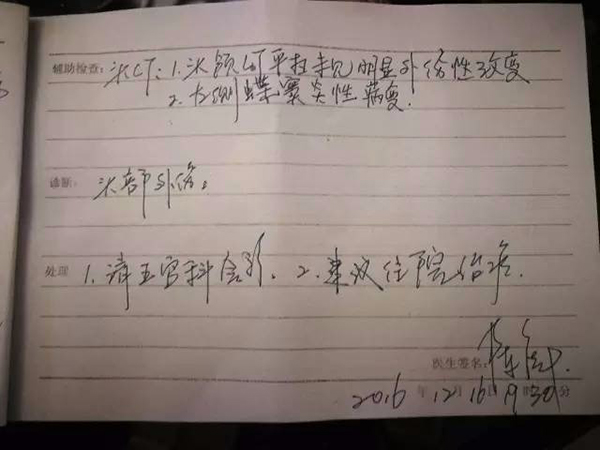 辅助检查:头CT:1.头颅CT平扫未见明显外伤性改变
2.左侧蝶窦炎性病变.
诊断:头部外伤。
处理 1.请五官科会诊、2.建议住院治疗.
医生签名:
2016年12月16日 时30分